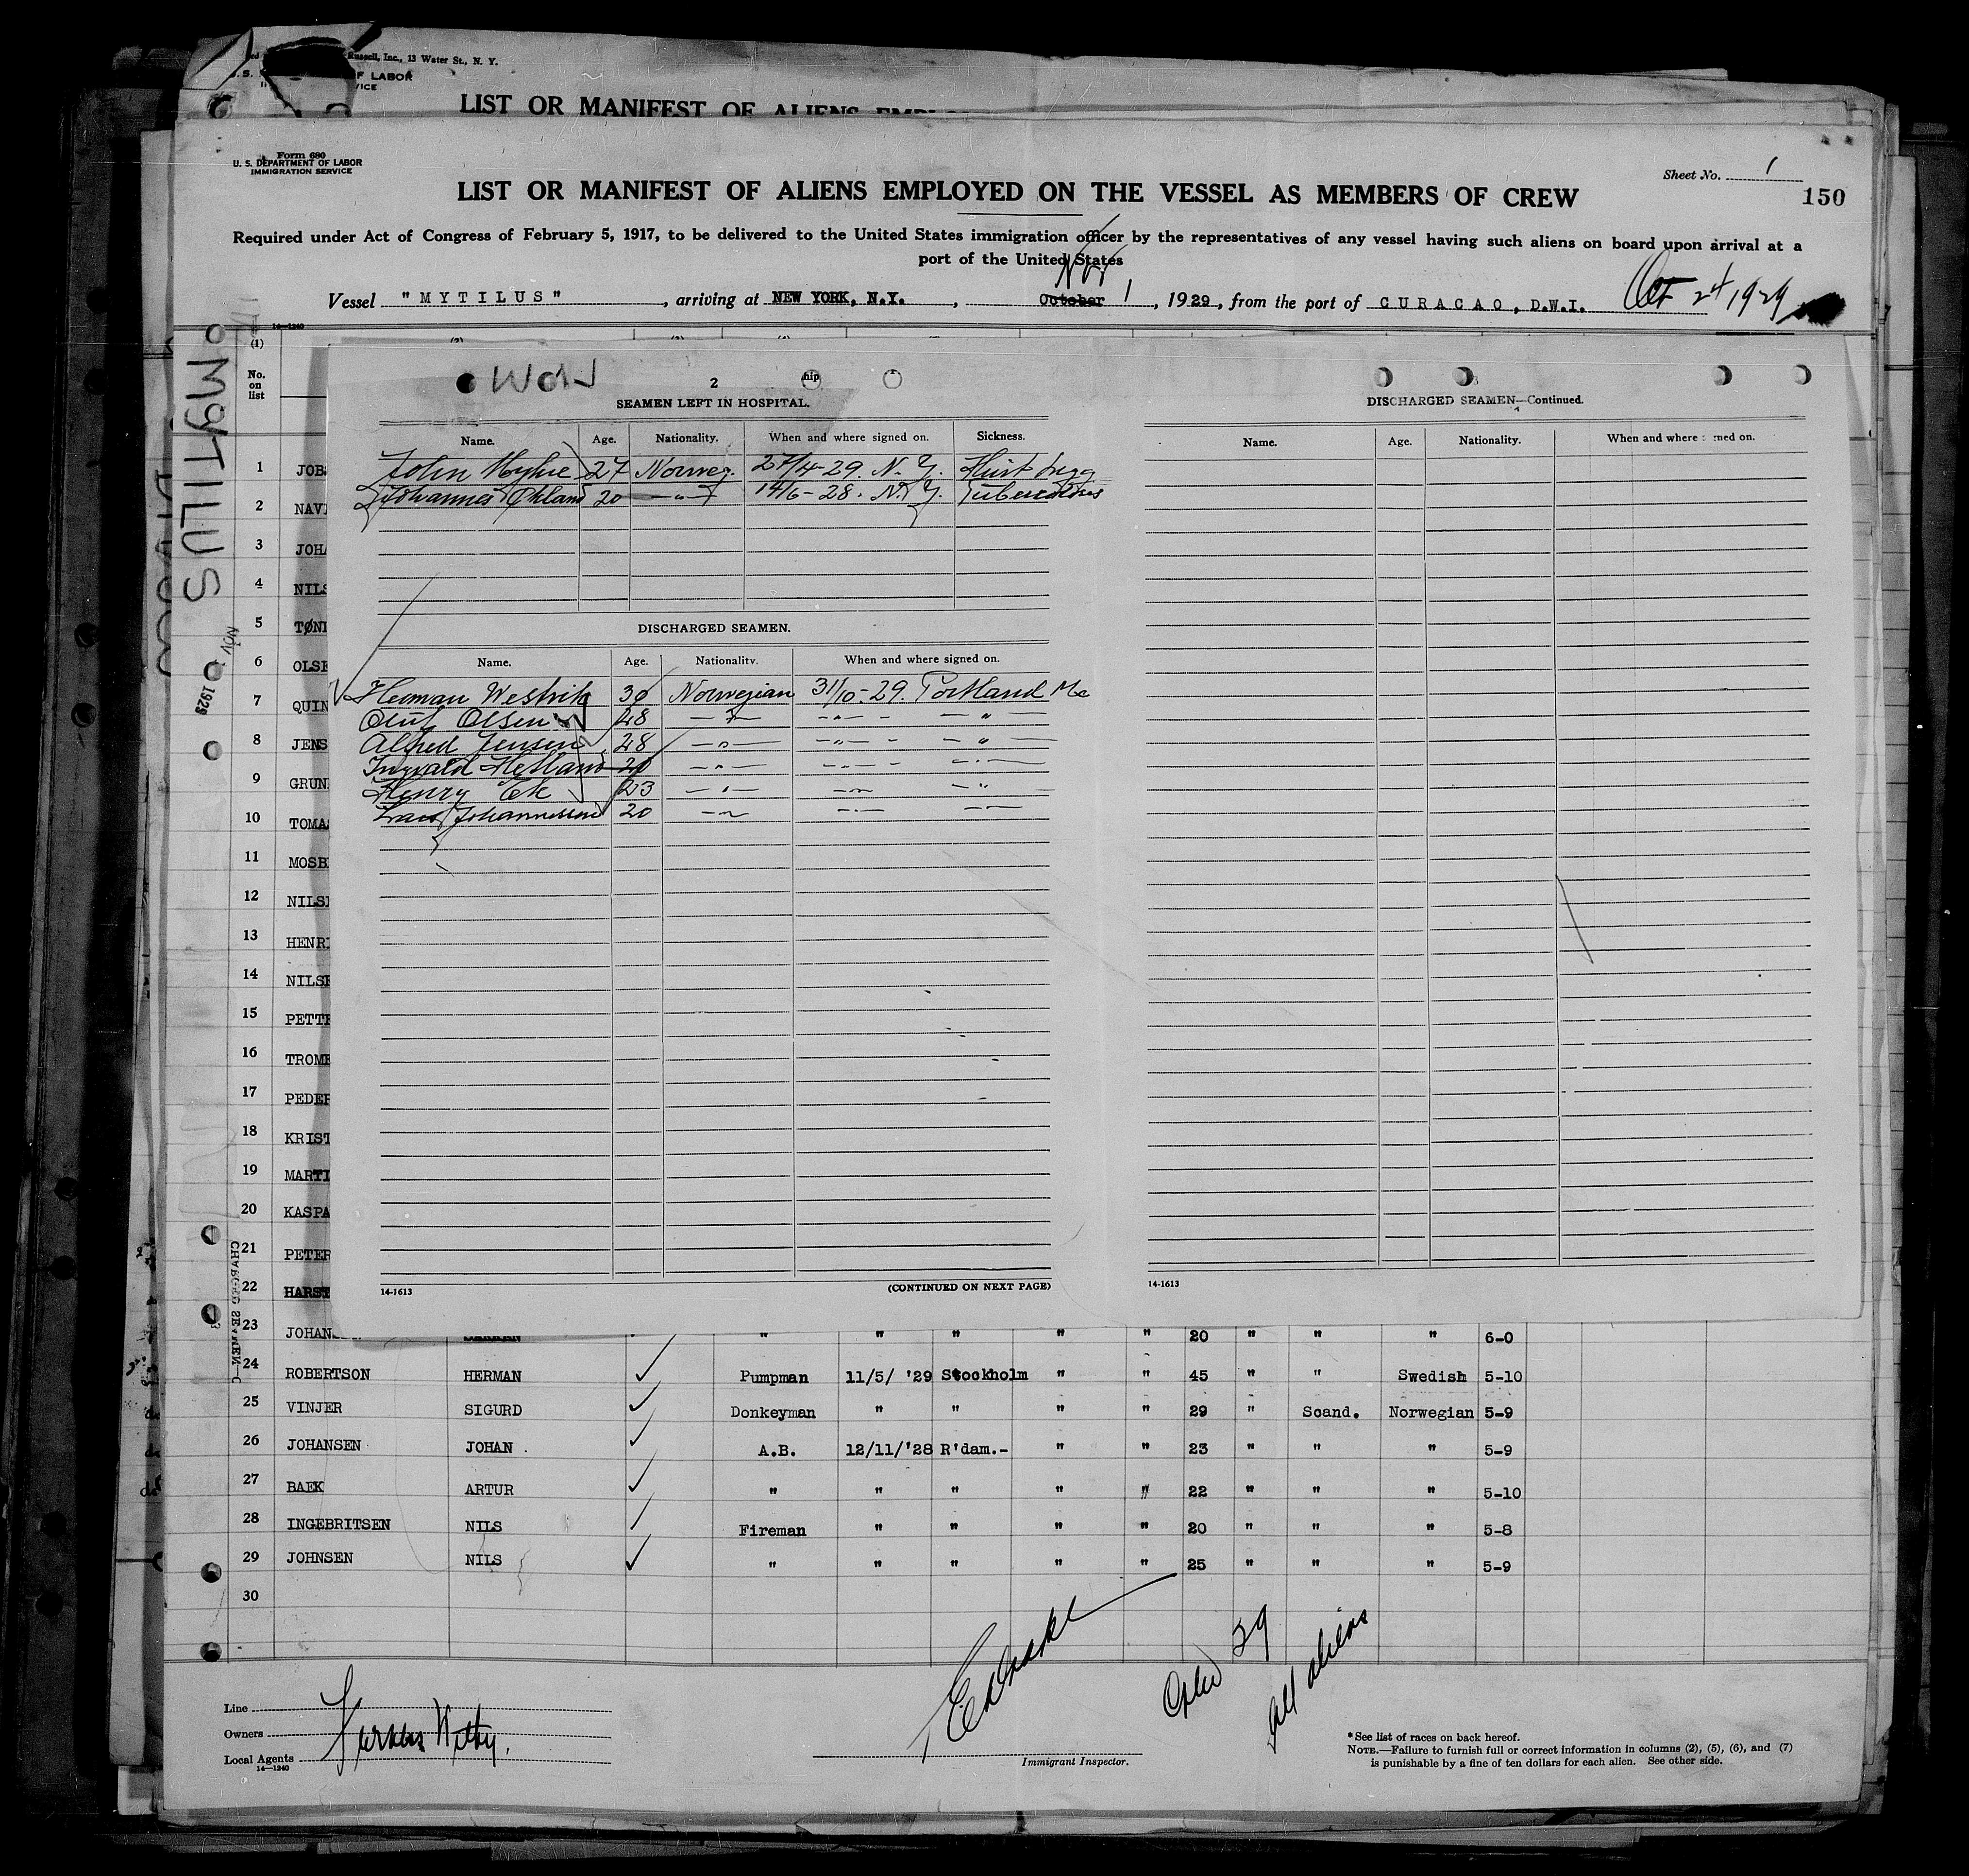 Russell, Inc., 13 Water St., N. Y.
F LABOR
VICE
LIST OR MANIFEST OF ALIENS
Form 680
U. S. DEPARTMENT OF LABOR
IMMIGRATION SERVICE
Sheet No. 1
150
LIST OR MANIFEST OF ALIENS EMPLOYED ON THE VESSEL AS MEMBERS OF CREW
Required under Act of Congress of February 5, 1917, to be delivered to the United States immigration officer by the representatives of any vessel having such aliens on board upon arrival at a
port of the United States
Nov
Vessel "MYTILUS", arriving at NEW YORK, N.Y., October 1, 1929, from the port of CURACAO, D.W.I. Oct 24 1929
14-1240
(1)
No. on list
MYTILUS
NOV 1 1929
2
SEAMEN LEFT IN HOSPITAL.
Name. Age. Nationality. When and where signed on. Sickness.
John 27 Norweg. 27/4-29. N.Y. Hurt
Johannes 20 -"- 14/6-28. N.Y. Tuberculosis
DISCHARGED SEAMEN.
Name. Age. Nationality. When and where signed on.
Herman Westvik 30 Norwegian 31/10-29. Portland Me
Oluf Olsen 48 -"- -"- -"-
Alfred Jensen 28 -"- -"- -"-
Ingvald 20 -"- -"- -"-
Henry Ek 23 -"- -"- -"-
Johannessen 20 -"- -"- -"-
14-1613 (CONTINUED ON NEXT PAGE)
DISCHARGED SEAMEN—Continued.
Name. Age. Nationality. When and where signed on.
14-1613
1 JOB
2 NAV
3 JOHA
4 NILS
5 TØN
6 OLSE
7 QUIN
8 JENS
9 GRUN
10 TOMA
11 MOSB
12 NILS
13 HENR
14 NILS
15 PETT
16 TROM
17 PEDE
18 KRIST
19 MARTI
20 KASPA
21 PETER
22 HARST
23 JOHAN " " " " " 20 " " " 6-0
24 ROBERTSON HERMAN Pumpman 11/5/ '29 Stockholm " " 45 " " Swedish 5-10
25 VINJER SIGURD Donkeyman " " " " 29 " Scand. Norwegian 5-9
26 JOHANSEN JOHAN . A.B. 12/11/'28 R'dam.- " " 23 " " " 5-9
27 BAEK ARTUR " " " " " 22 " " " 5-10
28 INGEBRITSEN NILS Fireman " " " " 20 " " " 5-8
29 JOHNSEN NILS " " " " " 25 " " " 5-9
30
Line
Owners
Local Agents Furness Withy.
14-1240
Immigrant Inspector.
29
all aliens
* See list of races on back hereof.
NOTE.—Failure to furnish full or correct information in columns (2), (5), (6), and (7)
is punishable by a fine of ten dollars for each alien. See other side.